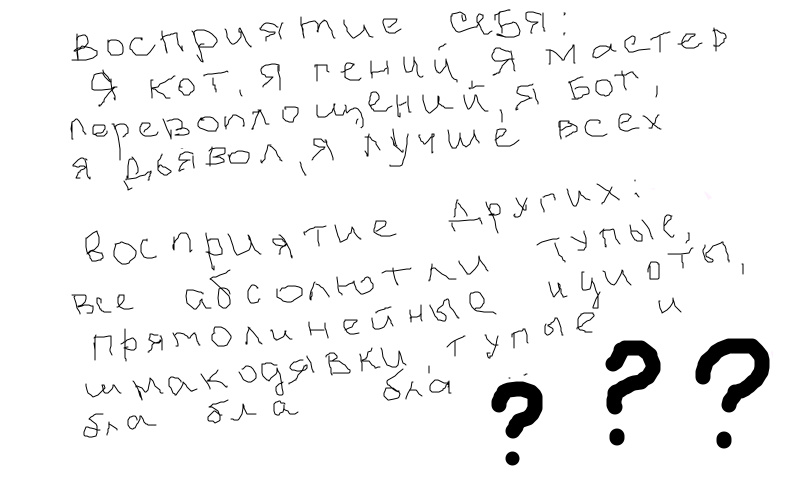 Восприятие себя:
Я кот, я гений, я мастер
перевоплощений, я бог,
я дьявол, я лучше всех
Восприятие других:
все абсолютли тупые,
прямолинейные идиоты,
шмакодявки, тупые и
бла бла бла ..
? ? ?